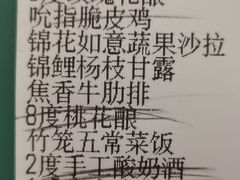 吮指脆皮鸡
锦花如意蔬果沙拉
锦鲤杨枝甘露
焦香牛肋排
8度桃花酿
竹笼五常菜饭
2度手工酸奶酒